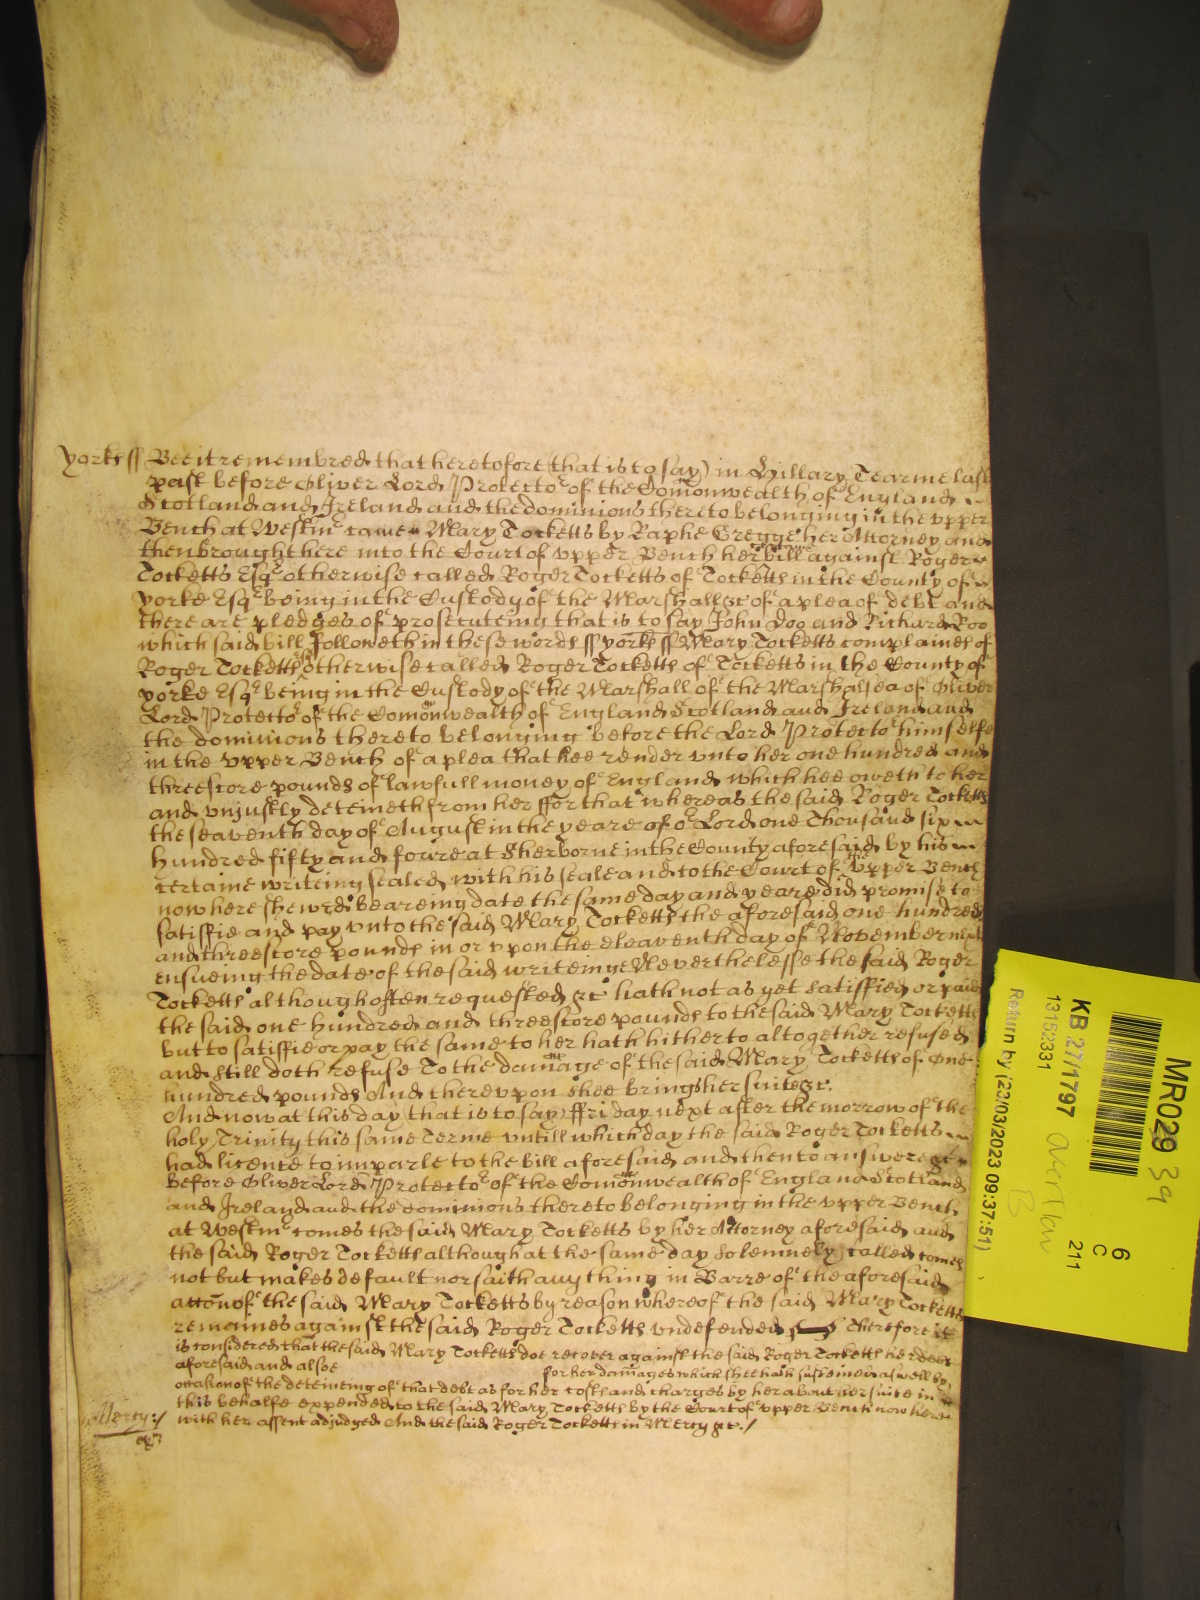 yorke ss Bee it remembred that heretofore (that is to say) in Hillary Tearme last
past before Oliver Lord Protector of the Comonwealth of England
Scotland and Ireland and the dominions thereto belonging in the upper
Bench at Westmr came Mary Tocketts by Raphe Gregge her Attorney and
then brought here into the Court of upper Bench her bill against Roger
Tocketts Esqr otherwise called Roger Tocketts of Tocketts in the County of
yorke Esqr being in the Custody of the Marshall &c of a plea of debt and
there are pledges of prosecuteing that is to say John Doo and Richard Roo
which said bill followeth in these words ss yorke ss Mary Tocketts complaines of
Roger Tocketts otherwise called Roger Tocketts of Tocketts in the County of
yorke Esqr being in the Custody of the Marshall of the Marshalsea of Oliver
Lord Protector of the Comonwealth of England Scotland and Ireland and
the dominions thereto belonging before the Lord Protector himselfe
in the upper Bench of a plea that hee render unto her one hundred and
threescore pounds of lawfull money of England which hee oweth to her
and unjustly deteineth from her ffor that whereas the said Roger Tocketts
the seaventh day of August in the yeare of or Lord one Thousand six
hundred fifty and foure at Sherborne in the County aforesaid by his
certaine writeing sealed with his seale and to the Court of the upper Bench
now here shewed beareing date the same day and yeare did promise to
satisfie and pay unto the said Mary Tocketts the aforesaid one hundred
and threescore pounds in or upon the eleaventh day of November next
ensueing the date of the said writeinge Neverthelesse the said Roger
Tocketts although often requested &c hath not as yet satisfied or paid
the said one hundred and threescore pounds to the said Mary Tocketts
but to satisfie or pay the same to her hath hitherto altogether refused
and still doth refuse To the damage of the said Mary Tocketts of One
hundred pounds And thereupon shee brings her suite &c.
And now at this day that is to say ffriday next after the morrow of the
holy Trinity this same Terme untill which day the said Roger Tocketts
had licence to imparle to the bill aforesaid and then to answere &c
before Oliver Lord Protector of the Comonwealth of England Scotland
and Ireland and the dominions thereto belonging in the upper Bench
at Westmr comes the said Mary Tocketts by her Attorney aforesaid and
the said Roger Tocketts although at the same day Solemnely called comes
not but makes default nor saith any thing in Barre of the aforesaid
accon of the said Mary Tocketts by reason whereof the said Mary Tocketts
remaines against the said Roger Tocketts undefended Therefore it
is considered that the said Mary Tocketts doe recover against the said Roger Tocketts her debt
aforesaid and alsoe for her damages which shee hath susteined aswell by
occasion of the deteineing of that debt as for her costs and charges by her about her suite in
this behalfe expended to the said Mary Tocketts by the Court of upper Bench now here
with her assent adjudged And the said Roger Tocketts in Mercy &c./
Mercy:/
MR029 39
6
C
211
KB 27/1797 overflow
B
13152331
Return by (23/03/2023 09:37:51)